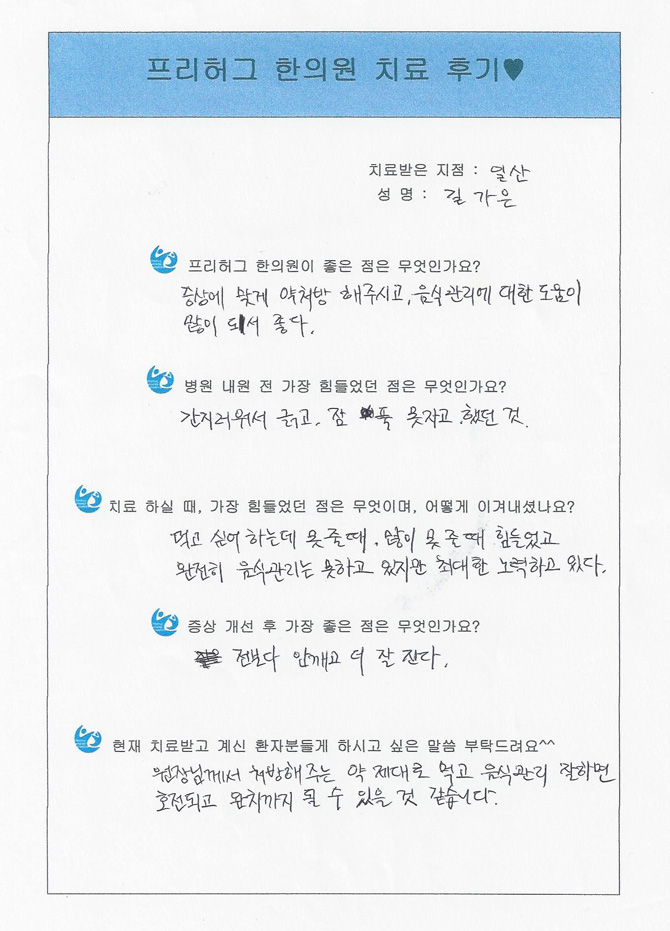 프리허그 한의원 치료 후기♥
치료받은 지점 : 일산
성 명 : 길가은
프리허그 한의원이 좋은 점은 무엇인가요?
증상에 맞게 약처방 해주시고, 음식관리에 대한 도움이
많이 되서 좋다.
병원 내원 전 가장 힘들었던 점은 무엇인가요?
간지러워서 긁고, 잠 푹 못자고 했던 것.
치료 하실 때, 가장 힘들었던 점은 무엇이며, 어떻게 이겨내셨나요?
먹고 싶어 하는데 못줄때, 많이 못 줄때 힘들었고
완전히 음식관리는 못하고 있지만 최대한 노력하고 있다.
증상 개선 후 가장 좋은 점은 무엇인가요?
전보다 안깨고 더 잘 잔다.
현재 치료받고 계신 환자분들게 하시고 싶은 말씀 부탁드려요^^
원장님께서 처방해주는 약 제대로 먹고 음식관리 잘하면
호전되고 완치까지 될 수 있을 것 같습니다.